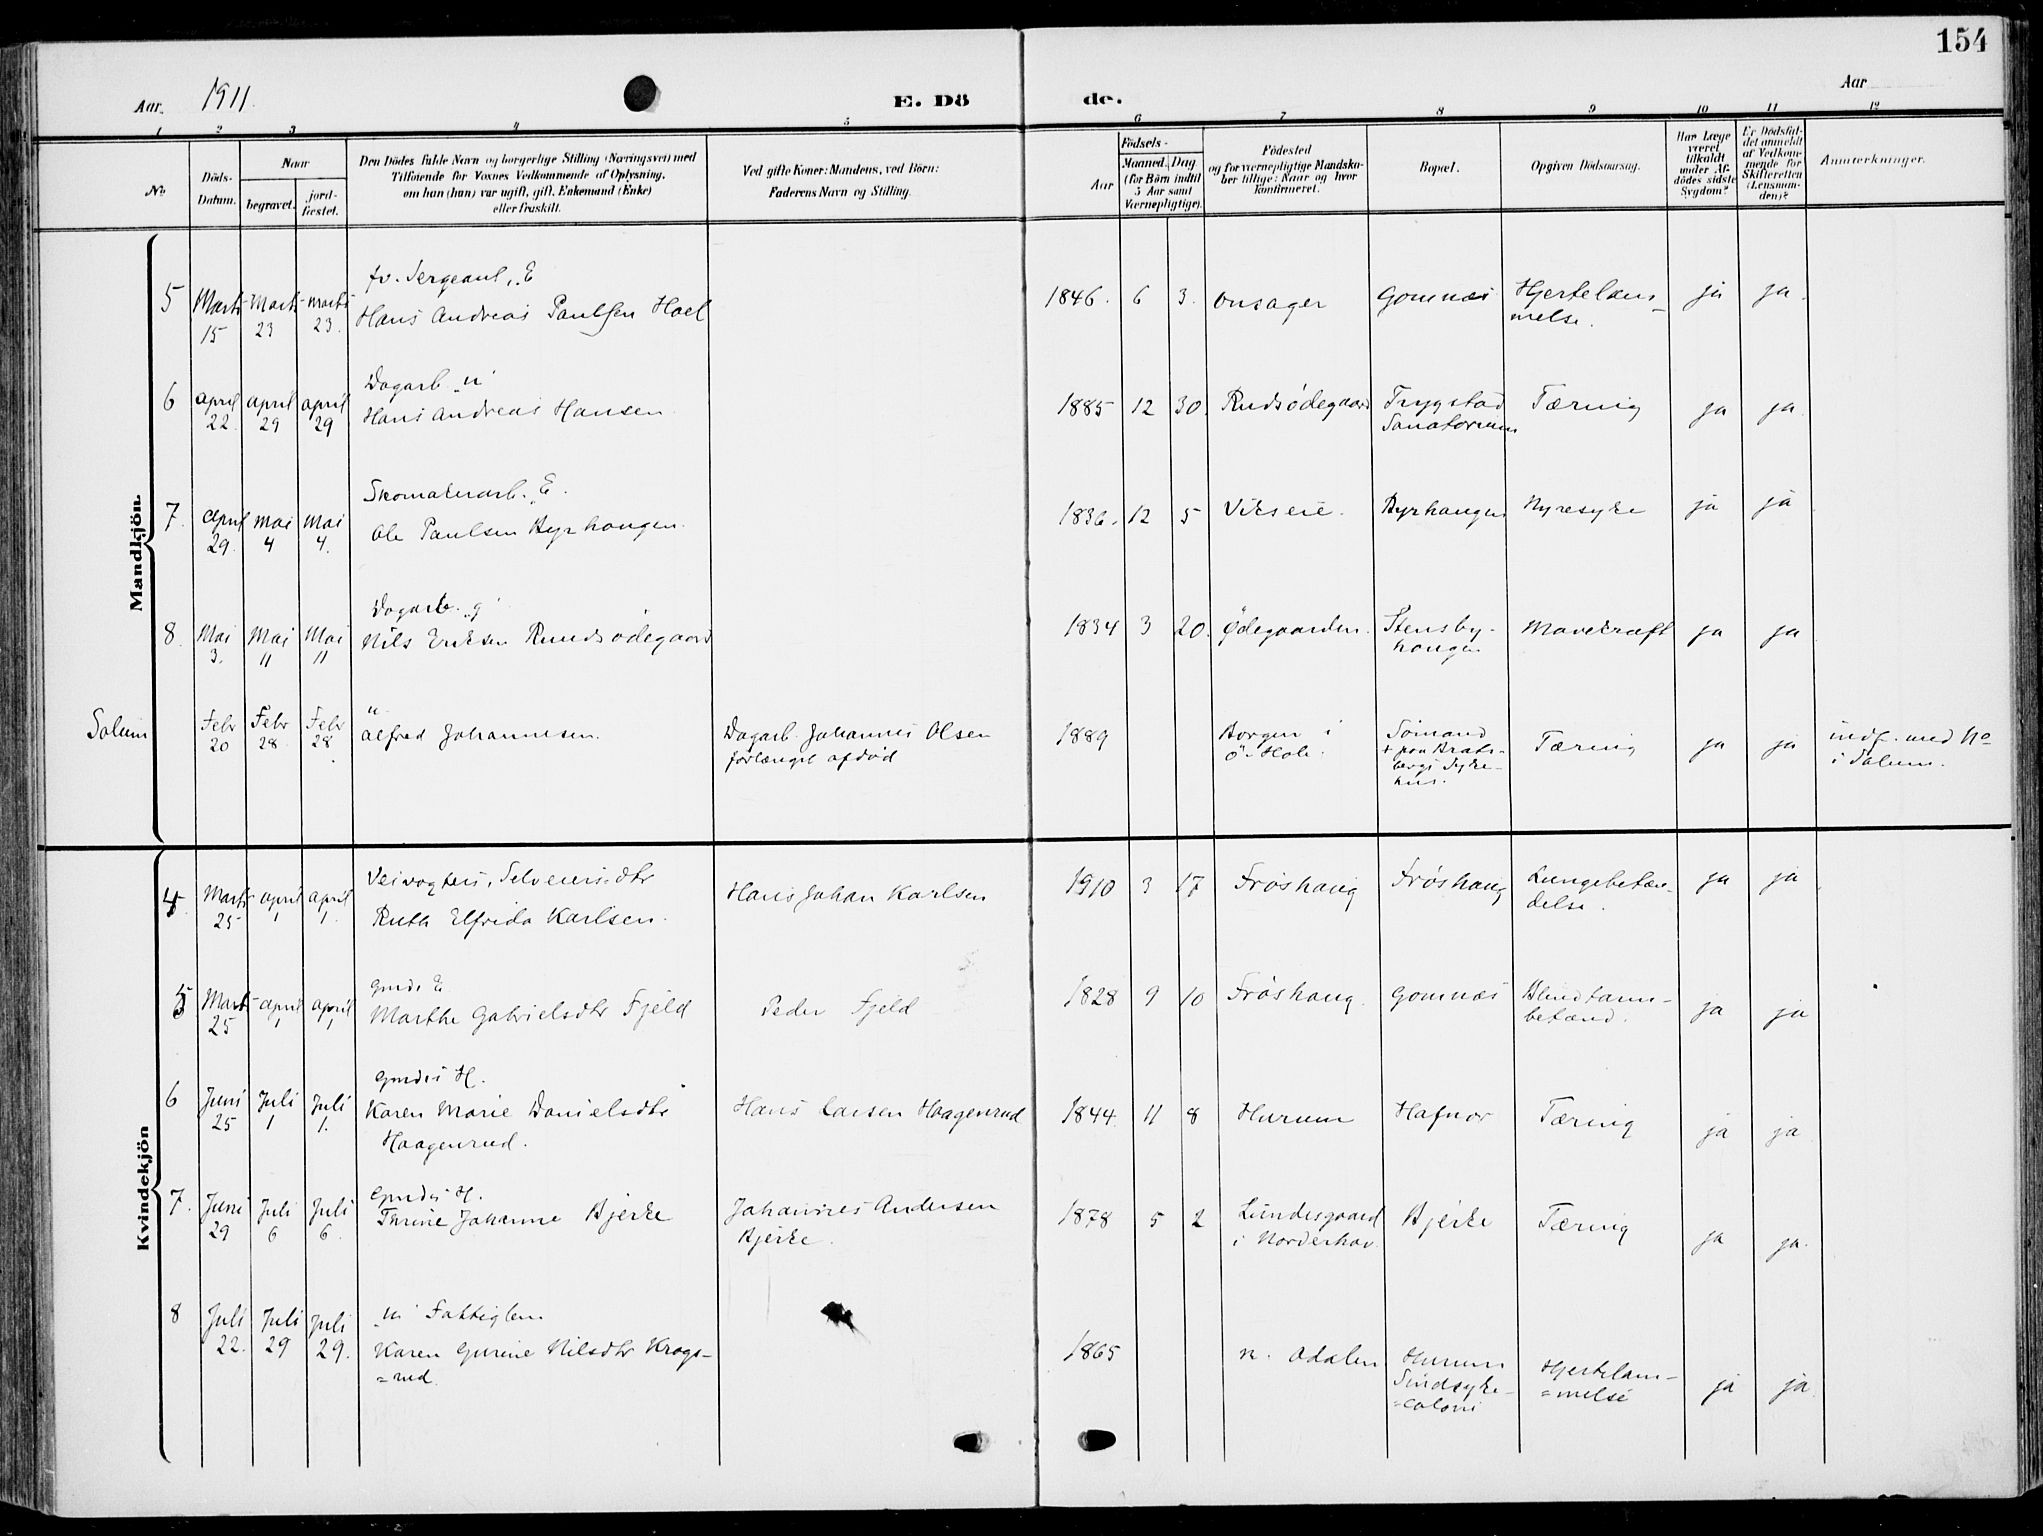 154
Aar 1911.
E. Döde.
Aar
1 2 3 4 5 6 7 8 9 10 11 12
No
Döds-Datum.
Naar
begravet.
jordfæstet.
Den Dödes fulde Navn og borgerlige Stilling (Næringsvei) med
Tilföiende for Voxnes Vedkommende af Oplysning,
om han (hun) var ugift, gift, Enkemand (Enke)
eller fraskilt.
Ved gifte Koner: Mandens, ved Börn:
Faderens Navn og Stilling.
Födsels-
Aar
Maaned. Dag
(for Börn indtil
5 Aar samt
Værnepligtige).
Födested
og for værnepligtige Mandska-
ber tillige: Naar og hvor
konfirmeret.
Bopæl.
Opgiven Dödsaarsag.
Har Læge
været
tilkaldt
under Af-
dödes sidste
Sygdom?
Er Dödsfal-
det anmeldt
af Vedkom-
mende for
Skifteretten
(Lensman-
den)?
Anmærkninger.
Mandkjön.
fv. Sergeant, E
5 Marts 15 Marts 23 Marts 23. Hans Andreas Paulsen Hoel 1846. 6 3. Onsager Gomnæs Hjertelam-
melse. ja ja
Dagarb. "u"
6 april 22. april 29 april 29 Hans Andreas Hansen 1885 12 30. Rudsødegaard Trygstad Tæring ja ja
Sanatorium
Skomakerarb. E.
7. april 29. mai 4 mai 4. Ole Paulsen Byrhaugen. 1836. 12 5 Vikseie. Byrhaugen Nyresyke ja ja
Dagarb. "g"
8. Mai 3. Mai 11 Mai 11 Nils Eriksen Rundsødegaard 1834 3 20. Ødegaarden. Stensby- Mavekræft ja ja
haugen
Solum Febr 20 Febr 28 Febr 28. u
Alfred Johannesen. Dagarb. Johannes Olsen
forlængst afdød 1889 Borgen i
Ø. Hole. Sømand
+ paa Brats-
bergs Syke-
hus. Tæring ja ja indf. med No
i Solum.
Kvindekjön
Veivogters, Selveiersdtr
4. Marts 25 april 1 april 1. Ruth Elfrida Karlsen. Hans Johan Karlsen 1910 3 17 Frøshaug Frøshaug Lungebetæn-
delse. ja ja
Gmds E.
5 Marts 25 april 1 april 1 Marthe Gabrielsdtr Fjeld Peder Fjeld 1828 9 10 Frøshaug. Gomnæs Blindtarm-
betænd. ja ja
Gmds H.
6 Juni 25 Juli 1 Juli 1. Karen Marie Danielsdtr
Haagenrud. Hans Larsen Haagenrud 1844. 11 8 Hurum Hafnor Tæring ja ja
Gmds H.
7. Juni 29 Juli 6 Juli 6. Thrine Johanne Bjerke Johannes Andersen
Bjerke. 1878 5 2 Lundesgaard
i Norderhov. Bjerke Tæring ja ja.
"u" Fattiglem
8 Juli 22. Juli 29 Juli 29. Karen Gurine Nilsdtr Krags-
=rud. 1865 n. Aadalen Hurum
Sindsyke-
=coloni Hjertelam-
=melse ja ja.